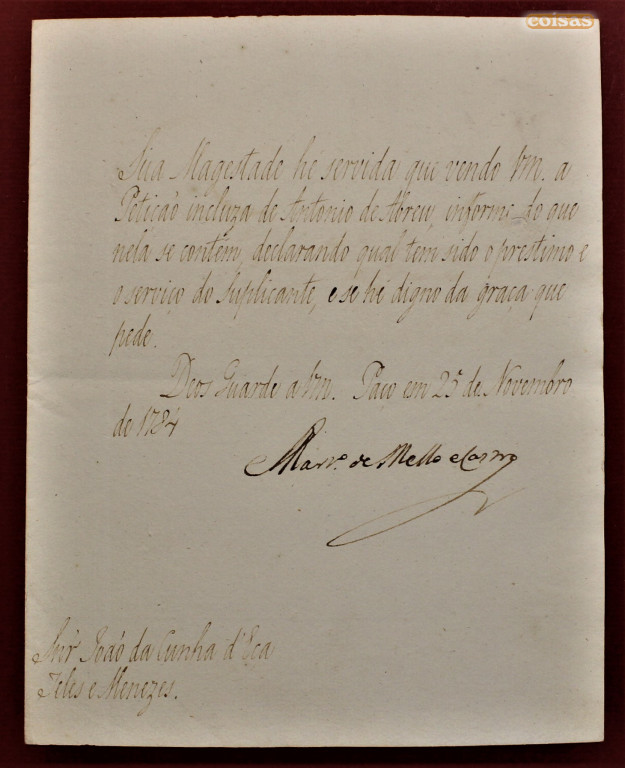 coisas
Sua Magestade he servida que vendo Vm. a
Petição incluza de Antonio de Abreu, informe do que
nela se contêm, declarando qual tem sido o prestimo e
o serviço do Suplicante, e se he digno da graça que
pede.
Deos Guarde a Vm. Paço em 25 de Novembro
de 1784
Mart.º de Mello e Castro
Snr. João da Cunha d'Eça
Teles e Menezes.